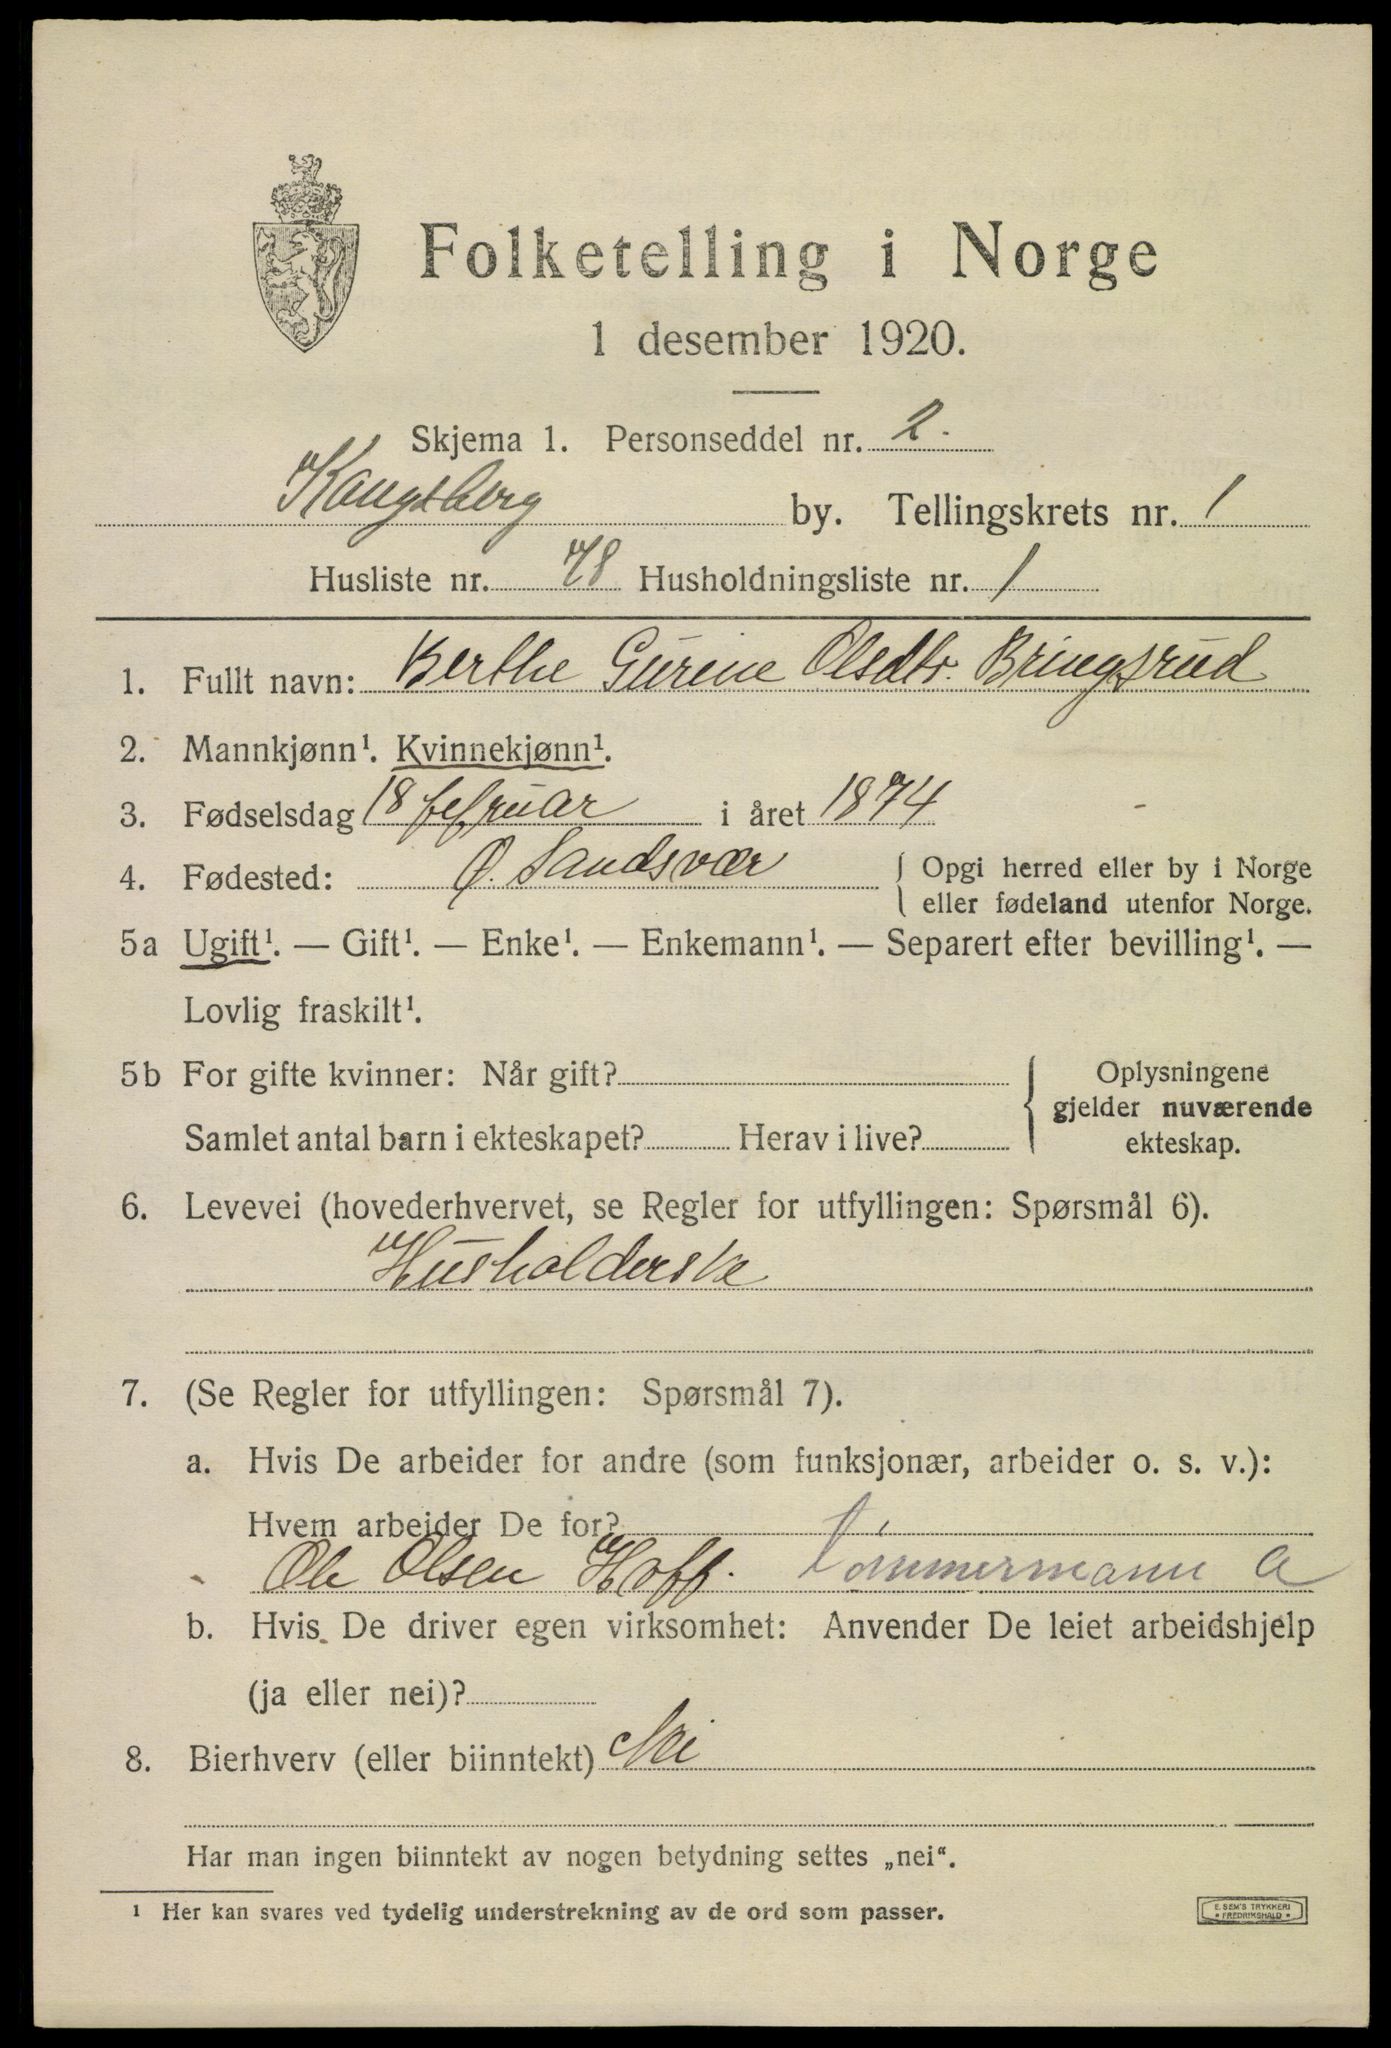 Folketelling i Norge
1 desember 1920.
Skjema 1. Personseddel nr. 2.
Kongsberg by. Tellingskrets nr. 1
Husliste nr. 78 Husholdningsliste nr. 1
1. Fullt navn: Berthe Gurine Olsdtr. Bringsrud
2. Mannkjønn¹. Kvinnekjønn¹.
3. Fødselsdag 18 februar i året 1874
4. Fødested: Ø. Sandsvær { Opgi herred eller by i Norge
eller fødeland utenfor Norge.
5a Ugift¹. — Gift¹. — Enke¹. — Enkemann¹. — Separert efter bevilling¹. —
Lovlig fraskilt¹.
5b For gifte kvinner: Når gift?
Samlet antal barn i ekteskapet? Herav i live?
{ Oplysningene
gjelder nuværende
ekteskap.
6. Levevei (hovederhvervet, se Regler for utfyllingen: Spørsmål 6).
Husholderske
7. (Se Regler for utfyllingen: Spørsmål 7).
a. Hvis De arbeider for andre (som funksjonær, arbeider o. s. v.):
Hvem arbeider De for?
Ole Olsen Hoff. tømmermann a
b. Hvis De driver egen virksomhet: Anvender De leiet arbeidshjelp
(ja eller nei)?
8. Bierhverv (eller biinntekt) Nei
Har man ingen biinntekt av nogen betydning settes „nei“.
¹ Her kan svares ved tydelig understrekning av de ord som passer.
E. SEM'S TRYKKERI
* FREDRIKSHALD *